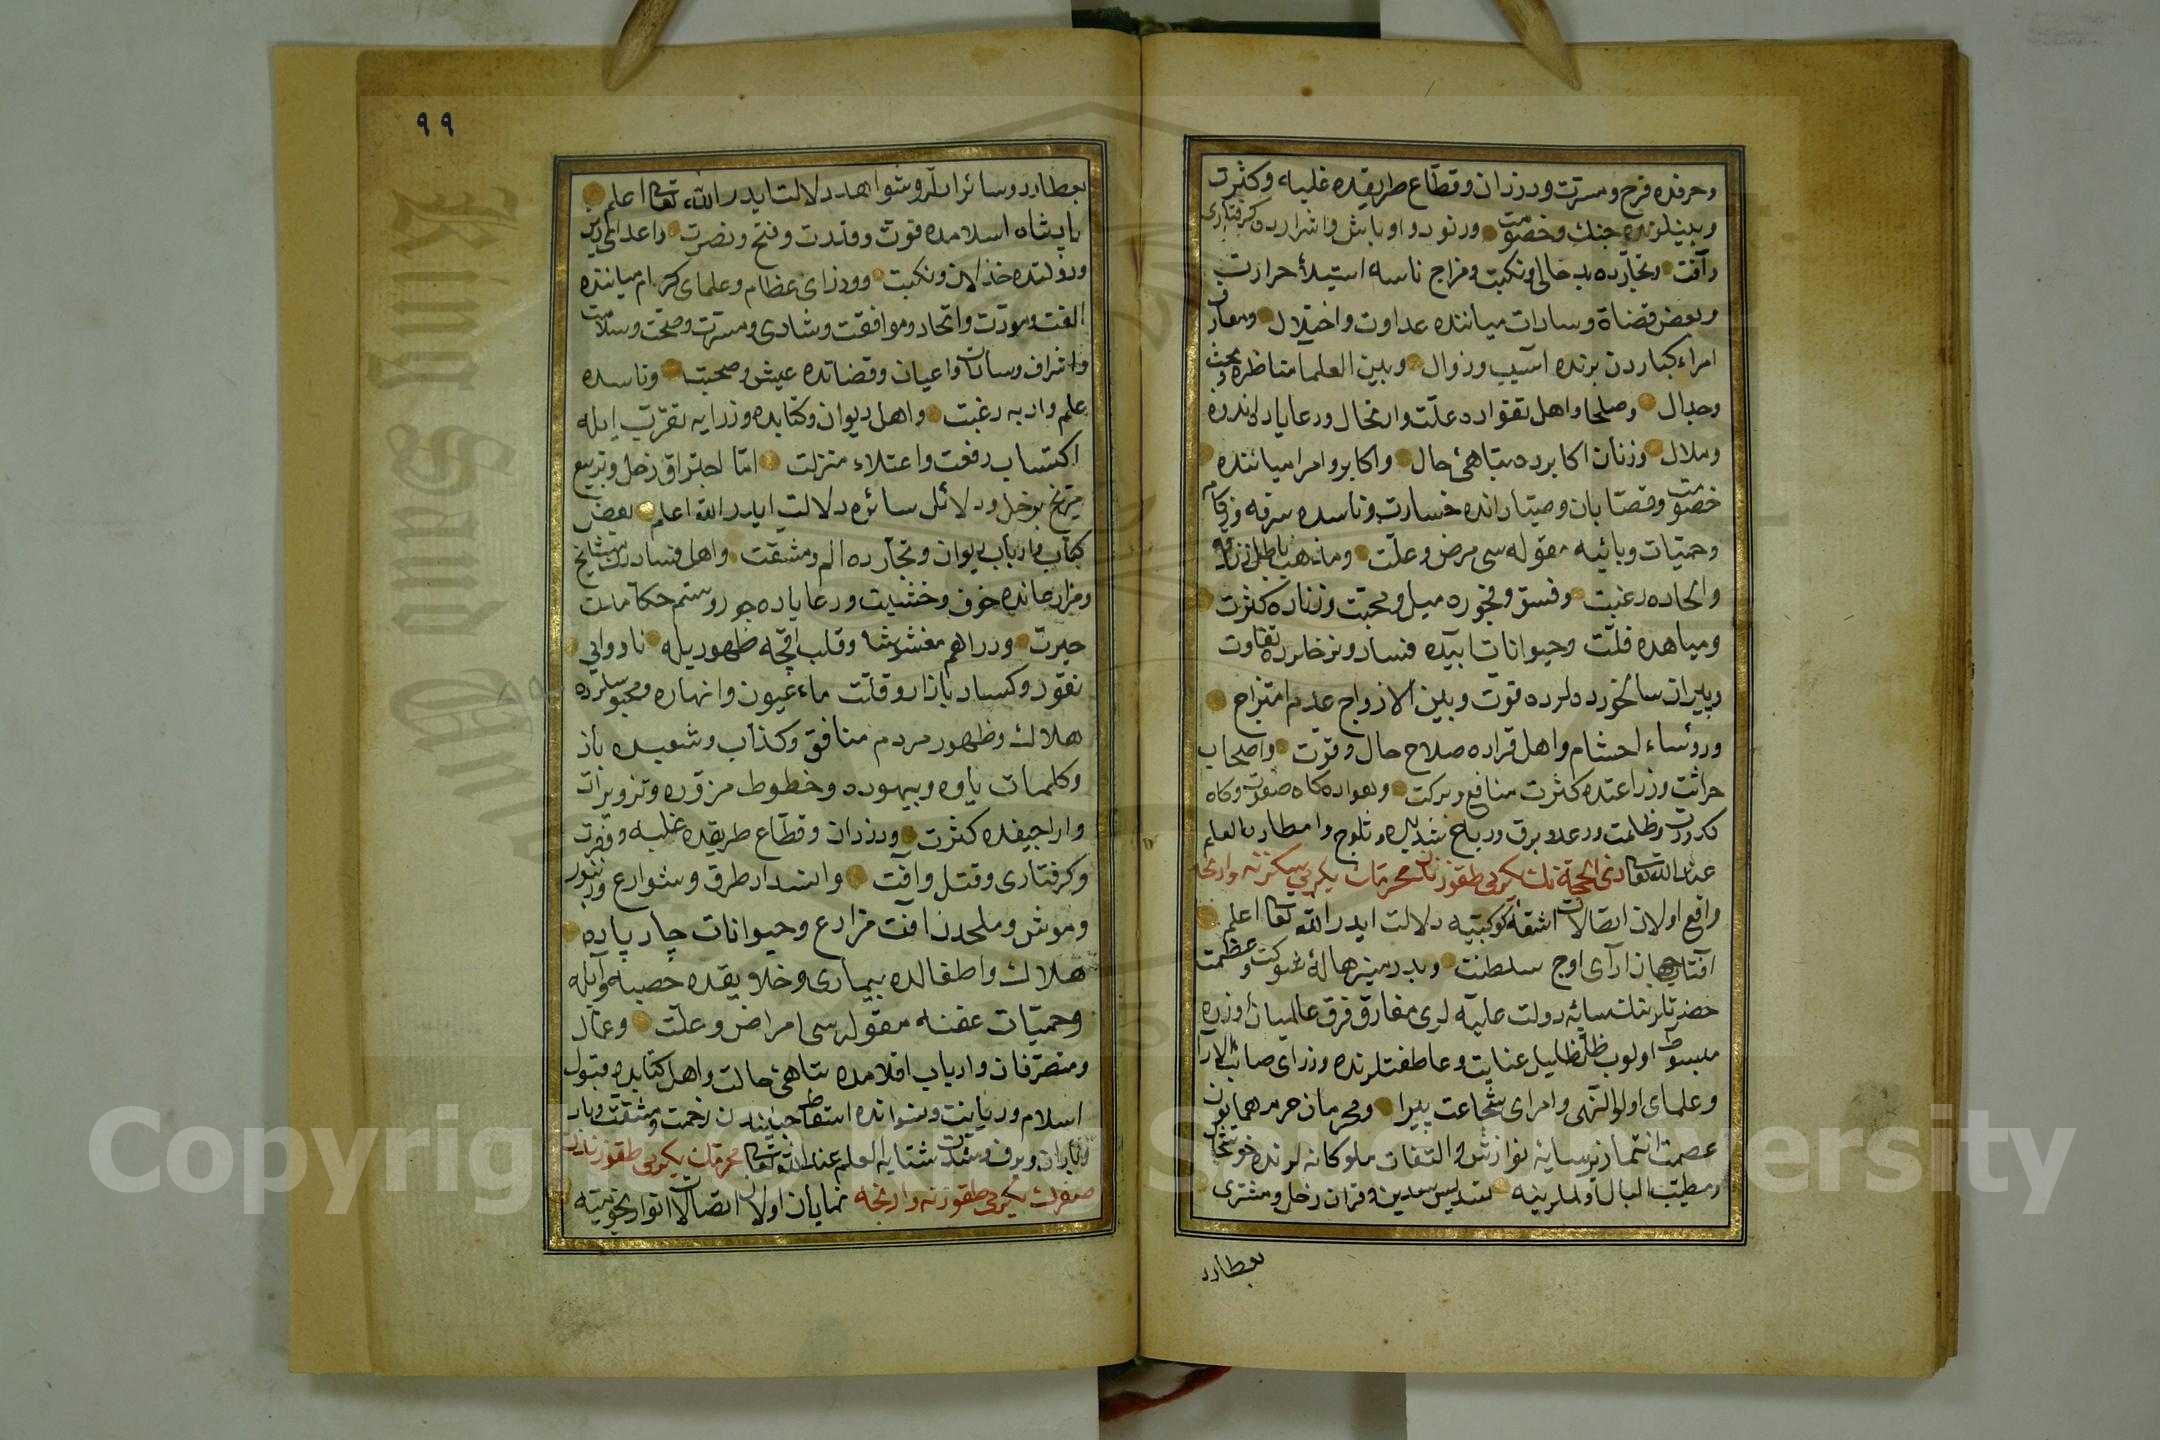 وحرفده فرح ومسرت ودزدان وقطاع طريقده غلبه وكثرت
وبينلرنده جنك وخصومت ورنود واوباش واشرارده كرفتارى
وآفت وتجارده بد حالى ونكبت ومزاج ناسه استيلاء حرارت
وبعض قضاة وسادات مياننده عداوت واختلال ومعارف
امراء كباردن برنده آسيب وزوال وبين العلما مناظره وبحث
وجدال وصلحا واهل تقواده علت وارتحال ورعايادل اندوه
وملال وزنان اكابرده تباهئ حال واكابر وامرا ميانندہ
خصومت وقصابان وصيادانده خسارت وناسده سرفه وزكام
وحميات وبائيه مقوله سى مرض وعلت ومذاهب باطل زنادقه
والحاده رغبت وفسق وفجوره ميل ومحبت وزناده كثرت
ومياهده قلت وحيوانات آبيده فساد ونرخلرده تفاوت
وپيران سالخورده لرده قوت وبين الازواج عدم امتزاج
ورؤساء احشام واهل قراده صلاح حال وقوت واصحاب
حراثت وزراعتده كثرت منافع وبركت وهواده كاه صفوت وكاه
كدورت وظلمت ورعد وبرق ورياح شديده وثلوج وامطار والعلم
عند الله تعالى ذى الحجة نك يكرمى طقوزندن محرمك يكرمى سكزنه وارنجه
واقع اولان اتصالات اشعهٔ كوكبيه دلالت ايدر الله تعالى اعلم
آفتاب جهان آراى اوج سلطنت وبدر منير هالهٔ شوكت وعظمت
حضرتلرينك سايهٔ دولت عليه لرى مفارق فرق عالميان اوزره
مبسوط اولوب ظل ظليل عنايت وعاطفتلرنده وزراى صائب الارا
وعلماى اولو النهى وامراى شجاعت پيرا ومحرمان حرم همايون
عصمت انتمالرينه نوازش والتفات ملوكانه لرنده خوشحال
ومطيب البال اولملرينه تسديس سعدين وقران زحل ومشترى
بعطارد
٩٩
بعطارد وسائر ادله وشواهد دلالت ايدر الله تعالى اعلم
پادشاه اسلامده قوت وقدرت وفتح ونصرت واعداى دين
ودولتده خذلان ونكبت ووزراى عظام وعلماى كرام ميانندہ
الفت ومودت واتحاد وموافقت وشادى ومسرت وصحت وسلامت
واشراف وسادات واعيان وقضاتده عيش وصحبت وناسده
علم وادبه رغبت واهل ديوان وكتابده وزرايه تقرب ايله
اكتساب رفعت واعتلاء منزلت اما احتراق زحل وتربيع
مريخ بزحل ودلائل سائره دلالت ايدر الله اعلم بعض
كتاب وارباب ديوان وتجارده الم ومشقت واهل فساددن مشايخ
ومزارعانده خوف وخشيت ورعاياده جور وستم حكامدن
حيرت ودراهم مغشوشه وقلب اقچه ظهوريله ناروايى
نقود وكساد بازار وقلت ماء عيون وانهاره ومحبوسلرده
هلاك وظهور مردم منافق وكذاب وشعبده باز
وكلمات ياوه وبيهوده وخطوط مزوره وتزويرات
واراجيفده كثرت ودزدان وقطاع طريقده غلبه وقوت
وكرفتارى وقتل وآفت وانسداد طرق وشوارع وزنبور
وموش وملخدن آفت مزارع وحيوانات چارپاده
هلاك واطفالده بيمارى وخلايقده حصبه وآبله
وحميات عفنه مقوله سى امراض وعلت وعمال
ومتصرفان وارباب اقلامده تباهئ حالت واهل كتابده قبول
اسلام وديانت ونسوانده اسقاط جنيندن زحمت ومشقت وباد
وباران وبرف وشدت شتايه العلم عند الله تعالى محرمك يكرمى طقوزندن
صفرك يكرمى طقوزنه وارنجه نمايان اولان اتصالات انوار نجوميه